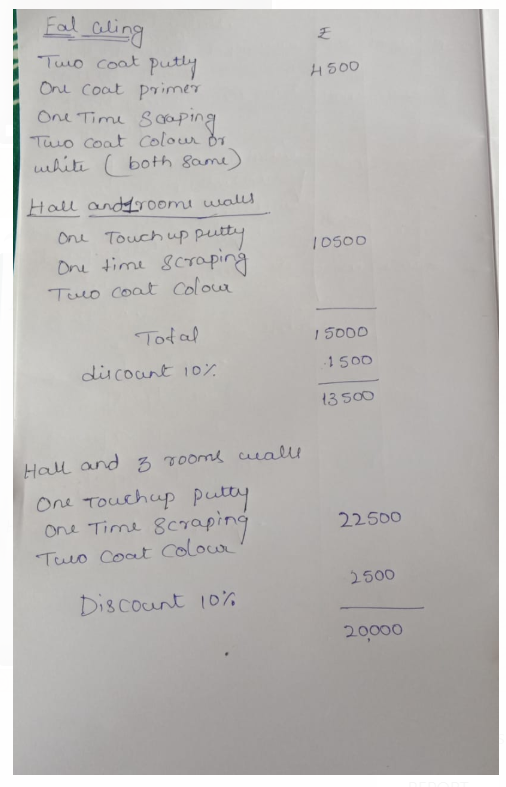 Fal Ciling ₹
Two coat putty 4500
One coat primer
One Time Scraping
Two coat colour or
white (both same)
Hall and 1 rooms walls
One Touchup putty 10500
One time Scraping
Two coat Colour
Total 15000
discount 10% 1500
13500
Hall and 3 rooms walls
One Touchup putty
One Time Scraping 22500
Two Coat Colour
2500
Discount 10%
20,000